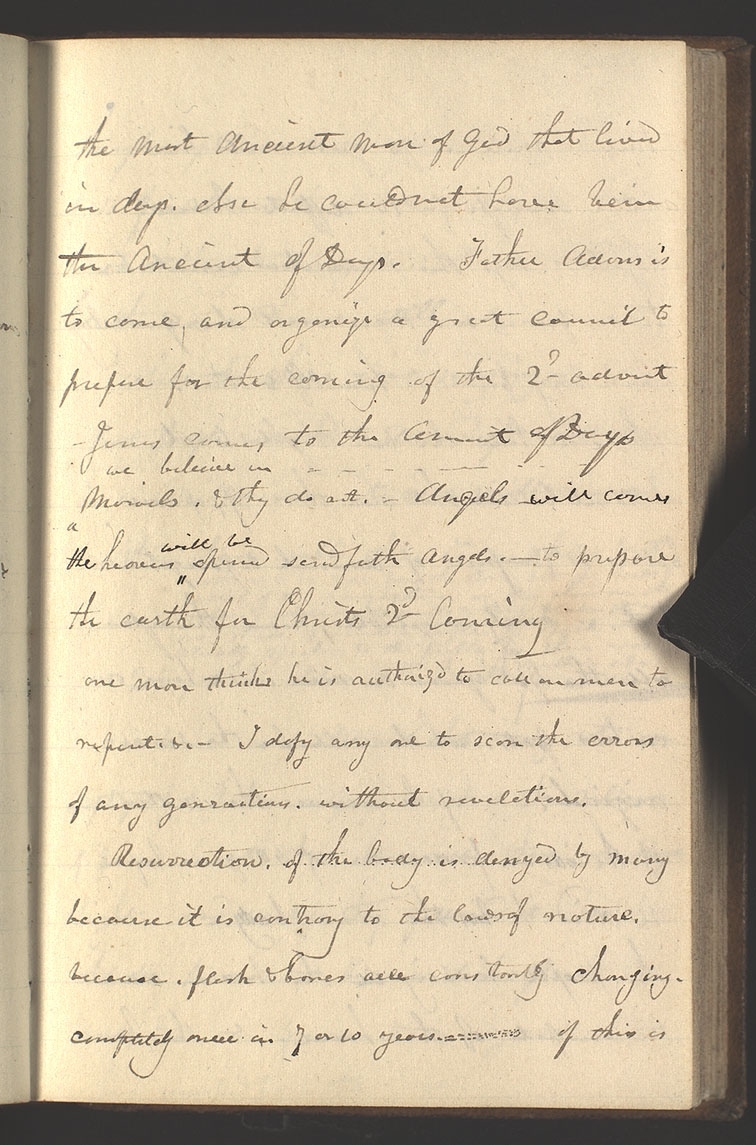 the most Ancient man of God that lived
in days. else he could not have bein
the Ancient of Days. Father Adams is
to come, and organize a great council to
prepare for the coming of the 2d advent
- Jesus comes to the Ancient of Days
we believe in - - - - - -
"Morivels. & they do act. - Angels will comes
will be
the heavens " opened send forth angels. — to prepare
the earth for Christs 2d Coming
one man thinks he is authoriz'd to call on men to
repent &c - I defy any one to scan the errors
of any generations. without revelations.
Resurrection. of the body is denyed by many
because it is contrary to the laws of nature.
because. flesh & bones are constantly changing.
completely once in 7 or 10 years. if this is